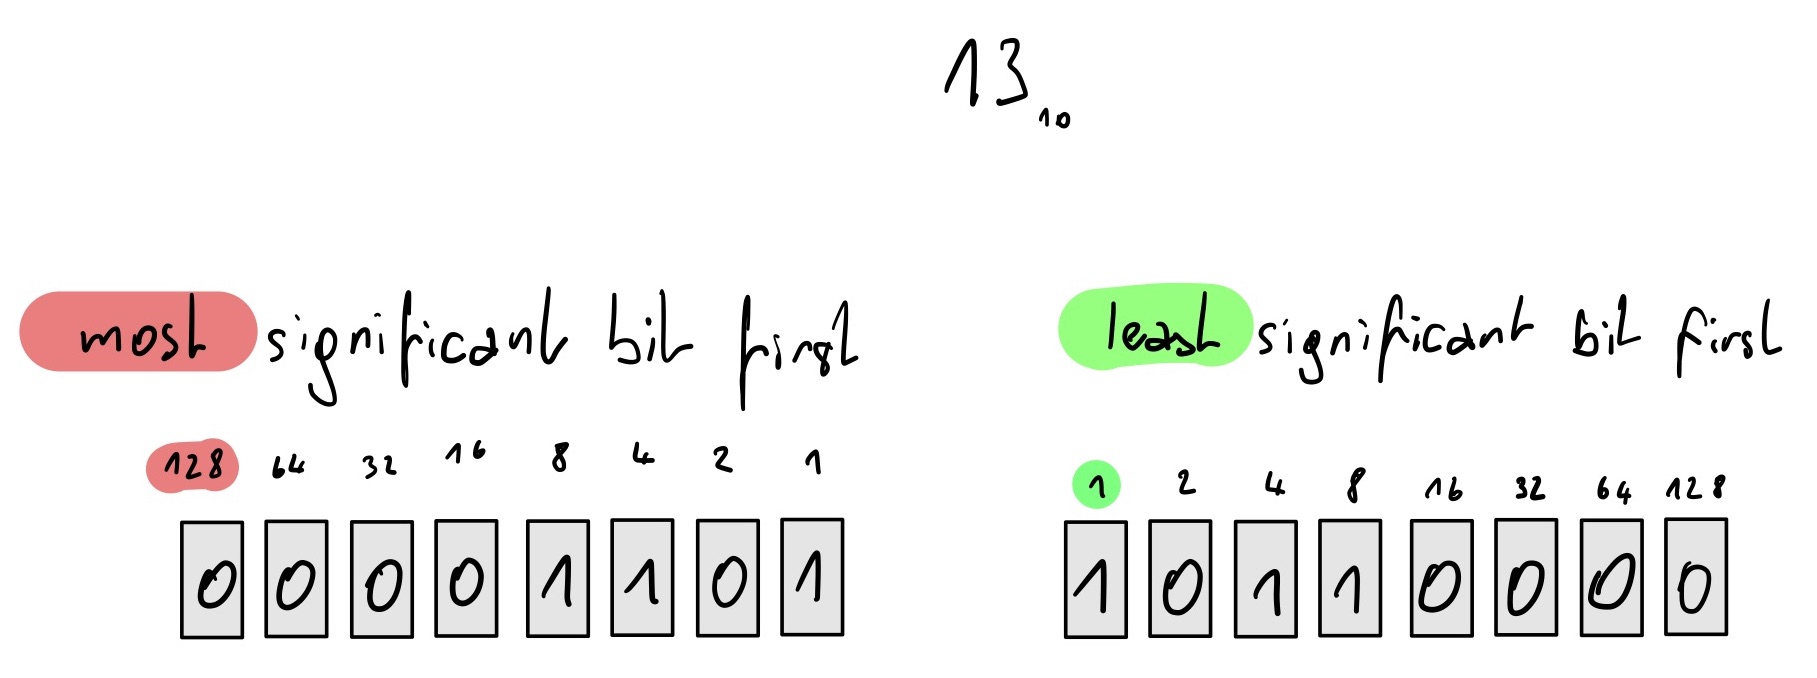 13₁₀
most significant bit first
128 64 32 16 8 4 2 1
0 0 0 0 1 1 0 1
least significant bit first
1 2 4 8 16 32 64 128
1 0 1 1 0 0 0 0